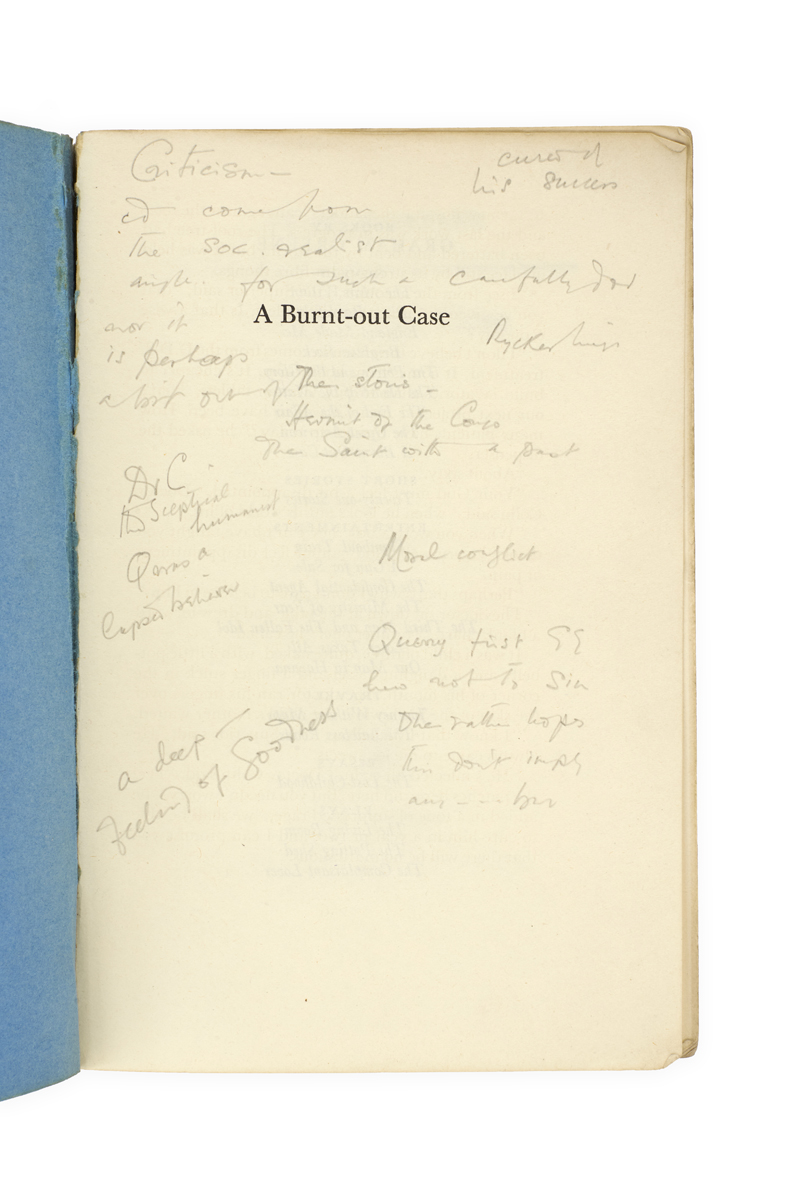 Criticism —
cured of
his success
cd come from
the soc. realist
angle. for such a carefully
A Burnt-out Case
nor it
is perhaps
a bit out of the
Rycker
Hermit of the Congo
The Saint with a past
Dr C
the Sceptical
humanist
Q was a
lapsed believer
Moral conflict
Querry first GG
hero not to Sin
rather hopes
this don't imply
a deep
feeling of Goodness